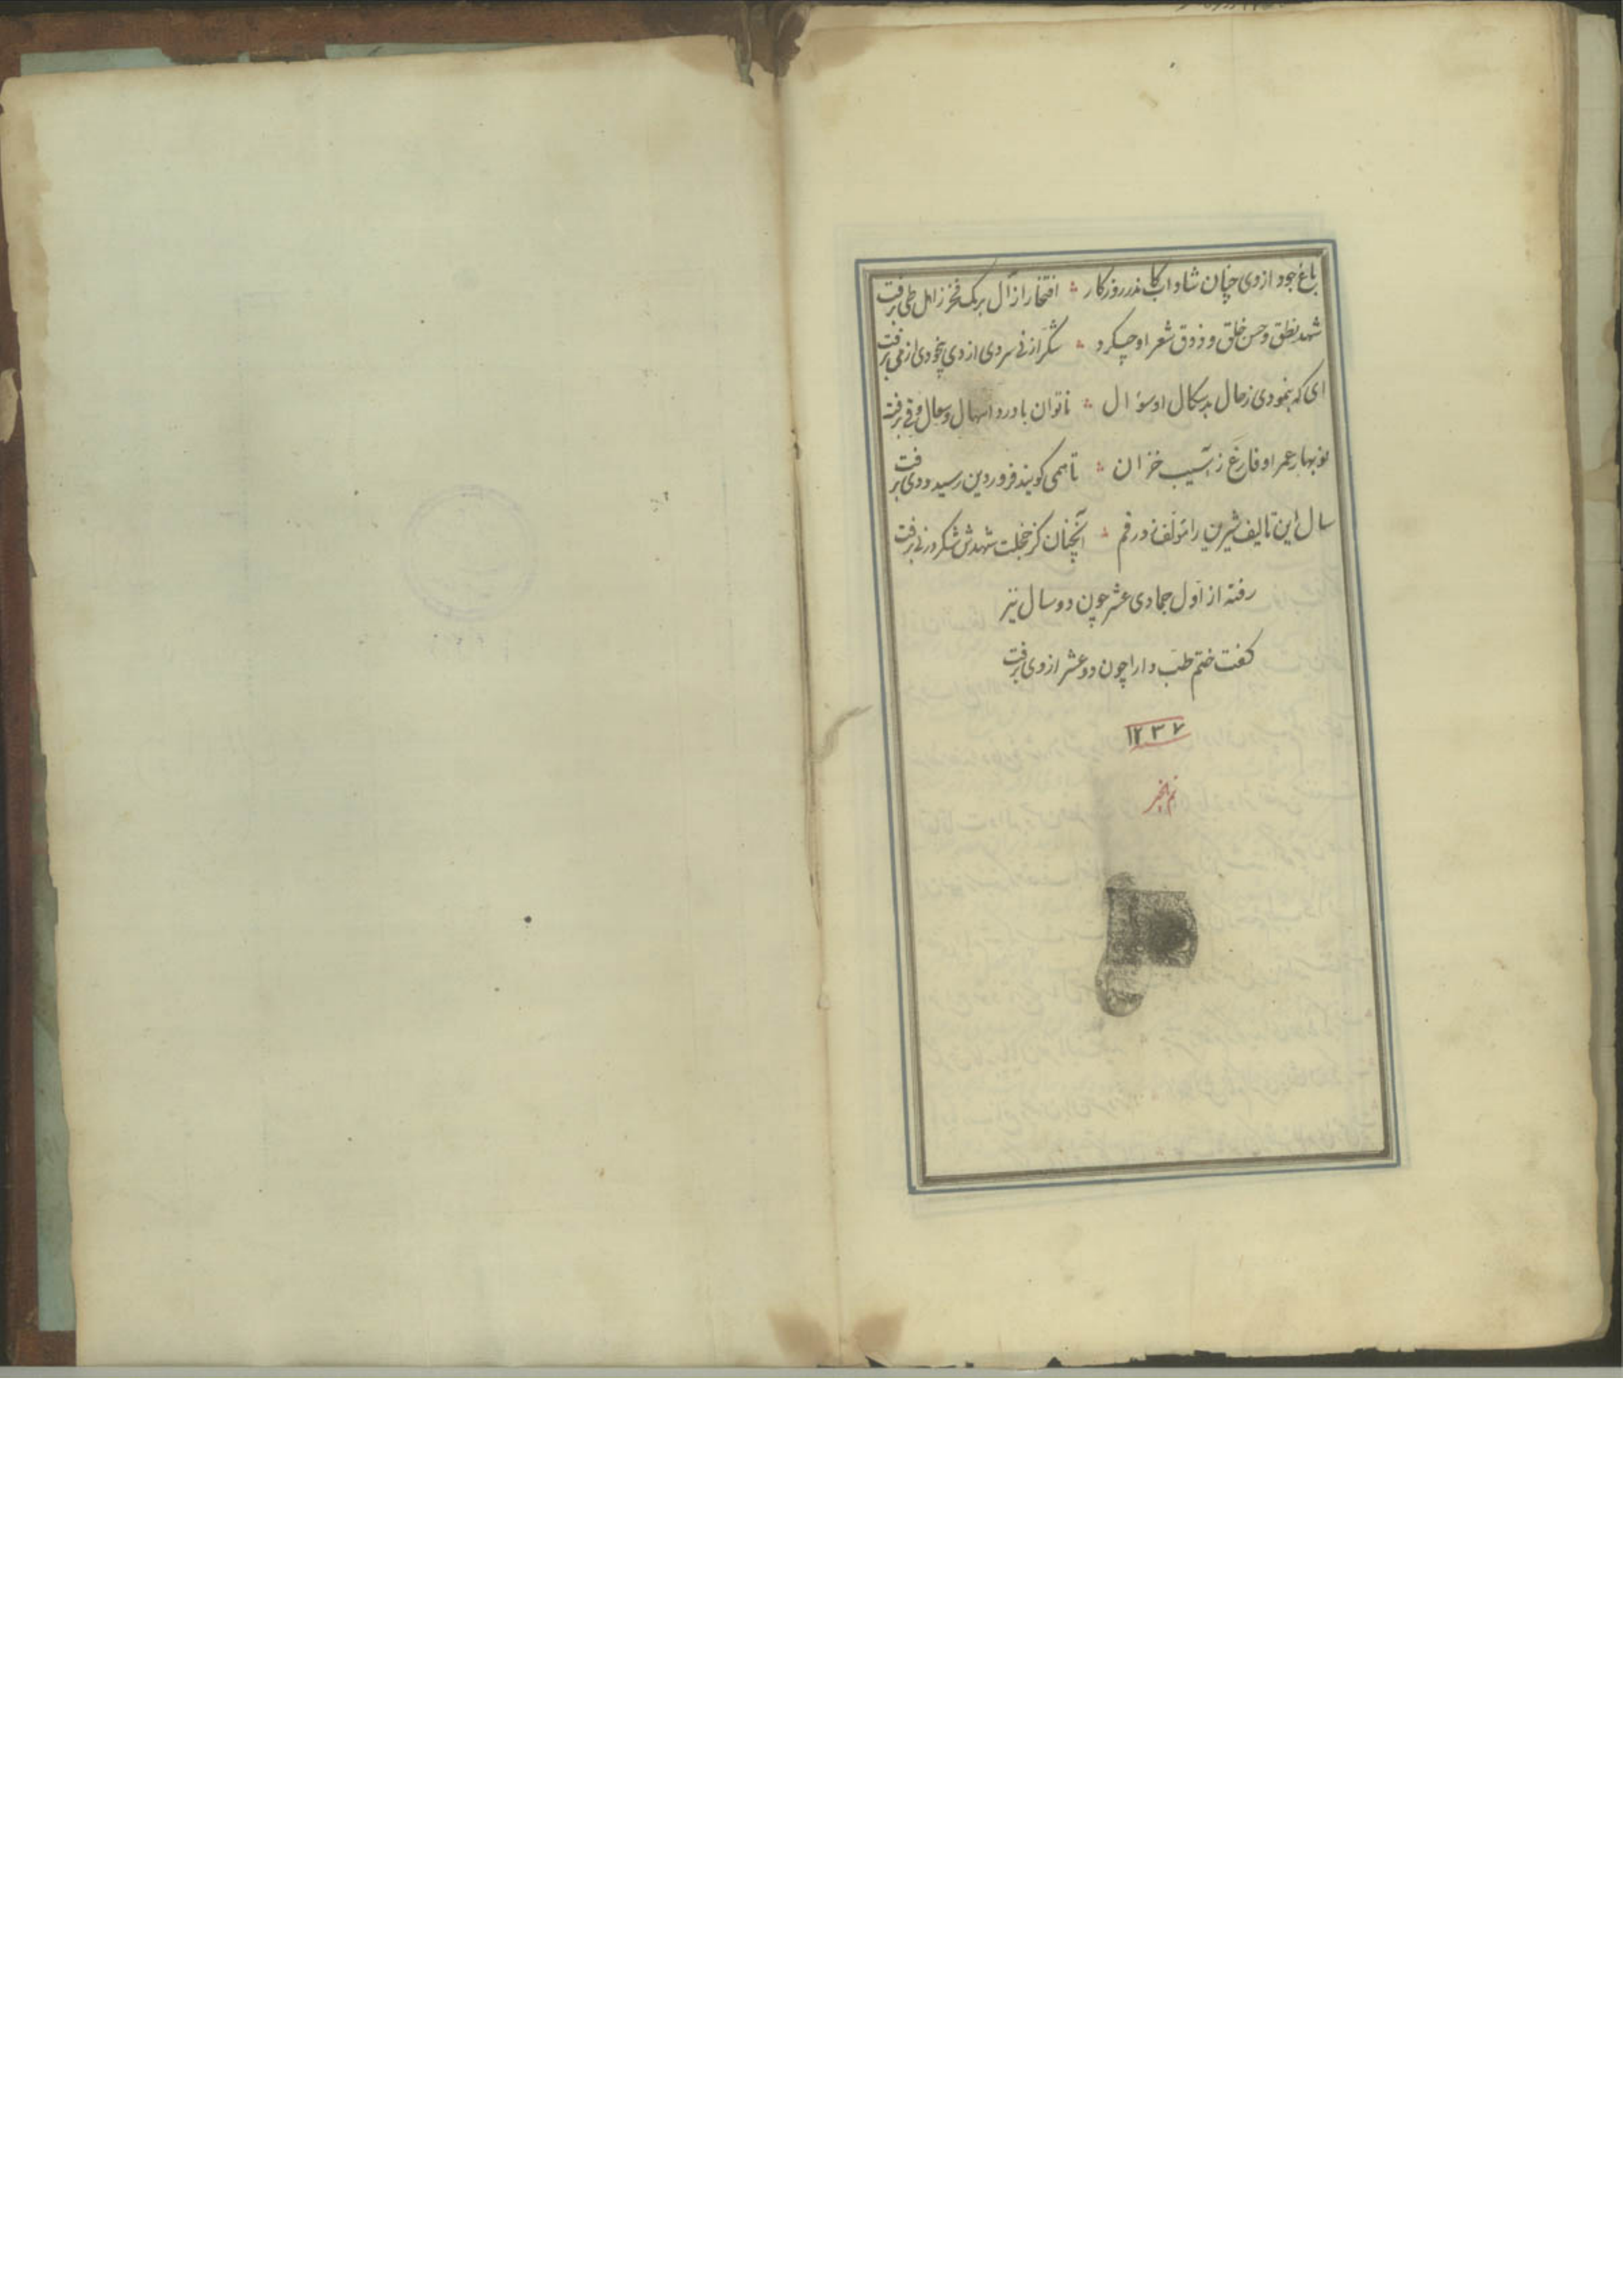 باغ جود از وی چنان شاداب کاندر روزکار ؞ افتخار از آل برمک فخر ز اهل طی برفت
شهد نطق و حسن خلق و ذوق شعر او چکرد ؞ شکر از نی سردی از دی بیخودی از می برفت
ای که بنمودی ز حال بدسکال او سؤال ؞ ناتوان با درد اسهال و سعال و قی برفت
نوبهار عمر او فارغ ز آسیب خزان ؞ تا همی کویند فروردین رسید و دی برفت
سال این تالیف شیرین را مؤلف زد رقم ؞ آنچنان کز خجلت شهدش شکر در نی برفت
رفته از اول جمادی عشر چون دو سال نیز
کفت ختم طب دارا چون دو عشر از وی برفت
۱۲۳۷